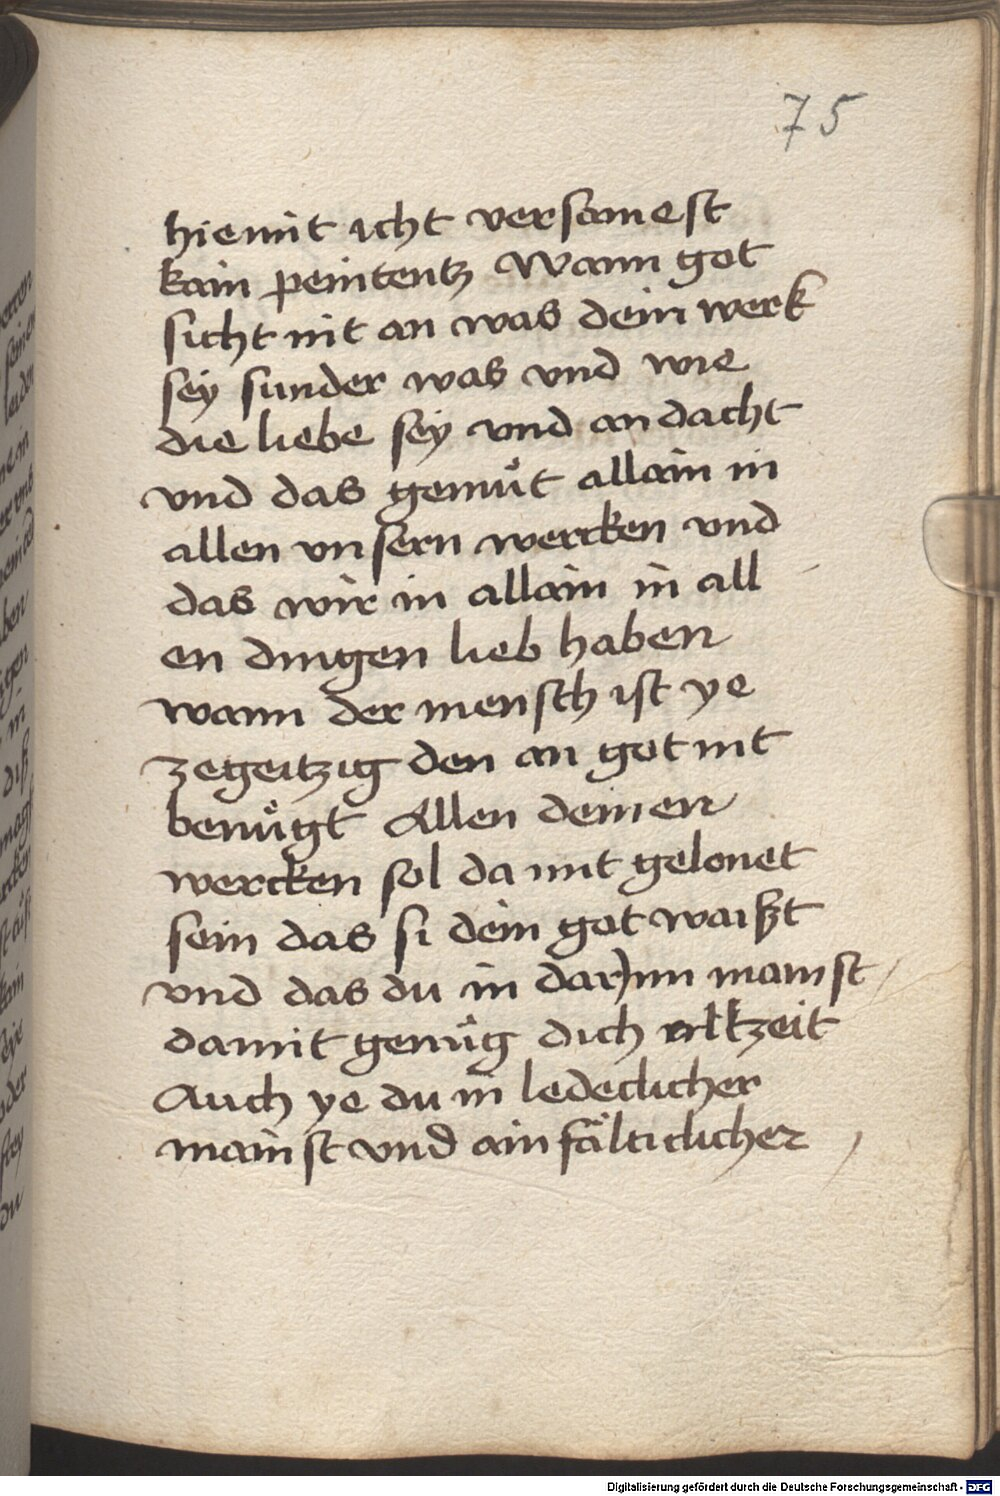 75
hiemit icht versamest
kain penitentz Wann got
sicht nit an was dein werk
sey sunder was vnd wie
die liebe sey vnd andacht
vnd das gemuͤt allain in
allen vnsern wercken vnd
das wir in allain in all
en dingen lieb haben
wann der mensch ist ye
zegeitzig den an got nit
benuͤgt Allen deinen
wercken sol da mit gelonet
sein das si dein got waißt
vnd das du in dar)inn mainst
damit genuͤg dich alltzeit
Auch ye du in ledeclicher
mainst vnd ainfälticlicher
Digitalisierung gefördert durch die Deutsche Forschungsgemeinschaft - DFG